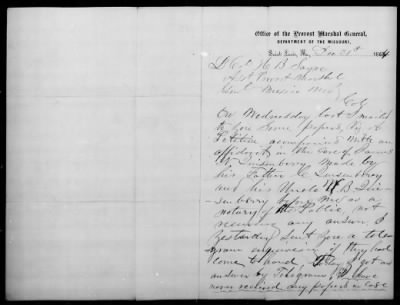 Office of the Provost Marshal General,
DEPARTMENT OF THE MISSOURI,
Saint Louis, Mo., Dec 31st 1864
Lt Col H B
Asst Provost Marshal
Mexico Mo
Col
On Wednesday last I mailed
to you some papers, viz A
Petition accompanied with an
affidavit in the case of
W. Quisenberry made by
his Father C Quisenberry
and his Uncle W B Qui-
senberry before me as a
notary Public, not
receiving any answer I
yesterday sent you a tele
gram enquiring if they had
come to hand, to day I got an
answer by Telegram, I have
never received any papers in case